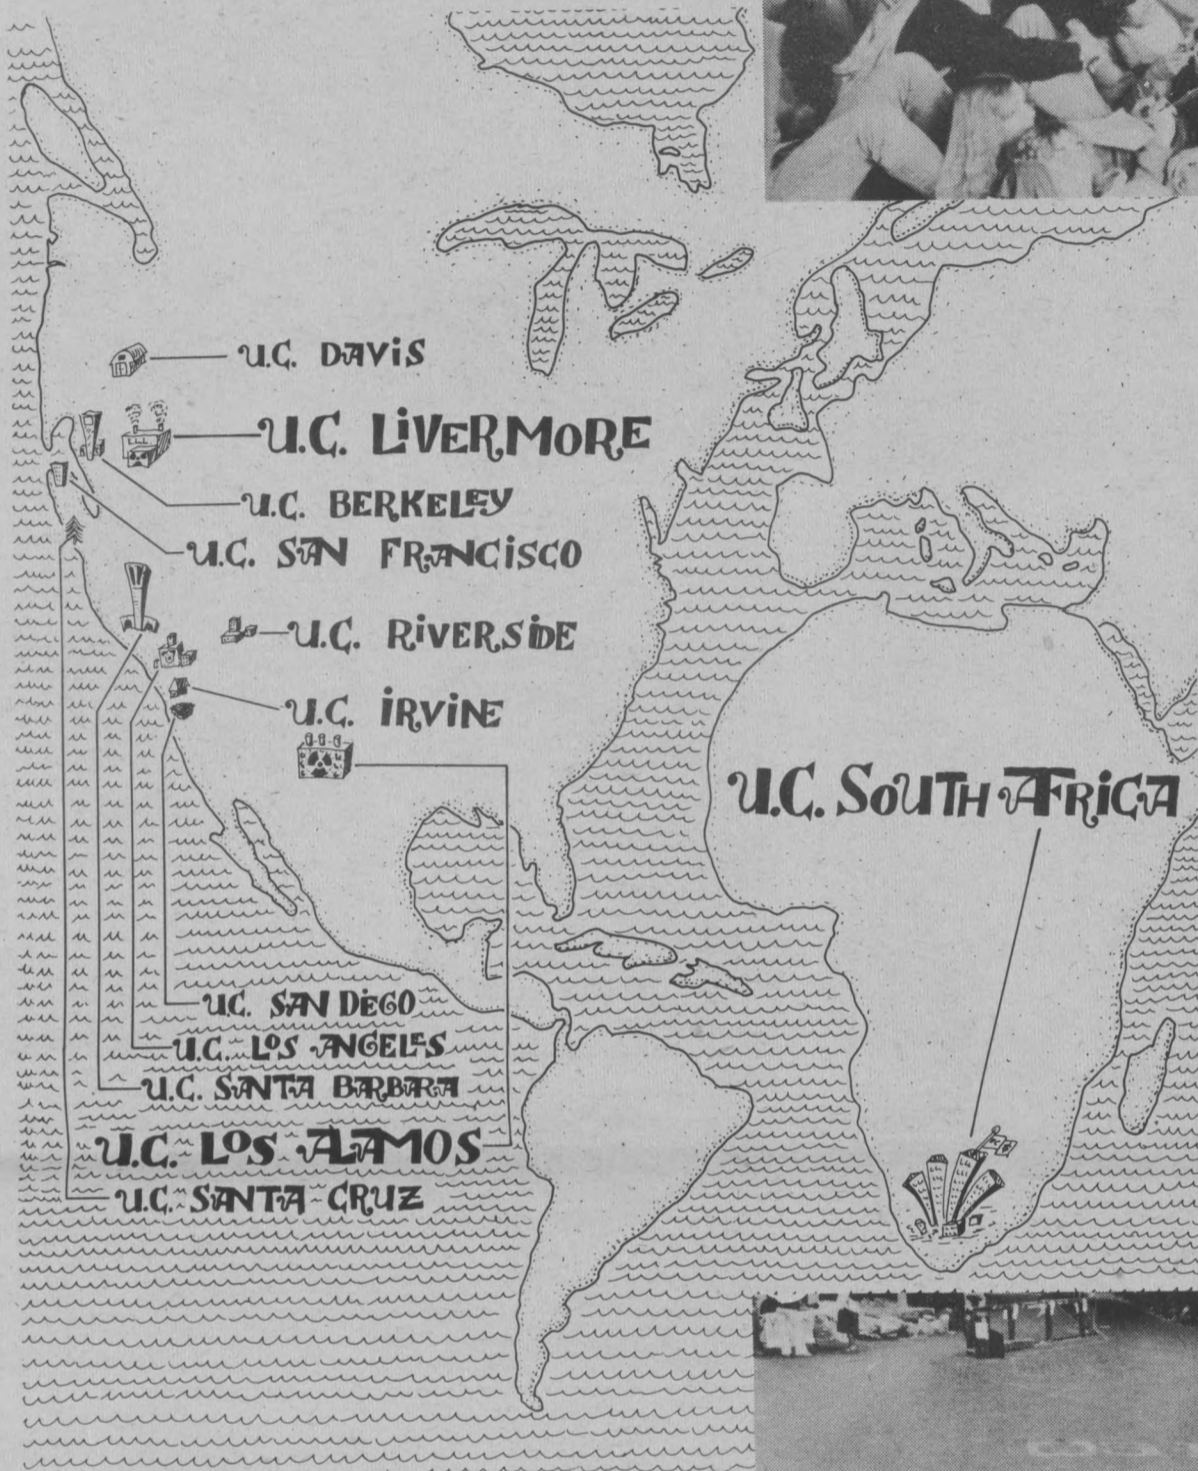 U.C. DAVIS
U.C. LIVERMORE
U.C. BERKELEY
U.C. SAN FRANCISCO
U.C. RIVERSIDE
U.C. IRVINE
U.C. SOUTH AFRICA
U.C. SAN DIEGO
U.C. LOS ANGELES
U.C. SANTA BARBARA
U.C. LOS ALAMOS
U.C. SANTA CRUZ